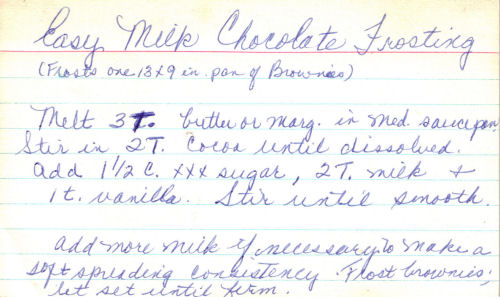 Easy Milk Chocolate Frosting
(Frosts one 13x9 in. pan of Brownies)
Melt 3 T. butter or marg. in med. saucepan
Stir in 2T. Cocoa until dissolved.
add 1 1/2 C. xxx sugar, 2T. milk +
1 t. vanilla. Stir until smooth.
add more milk if necessary to make a
soft spreading consistency. Frost brownies,
let set until firm.